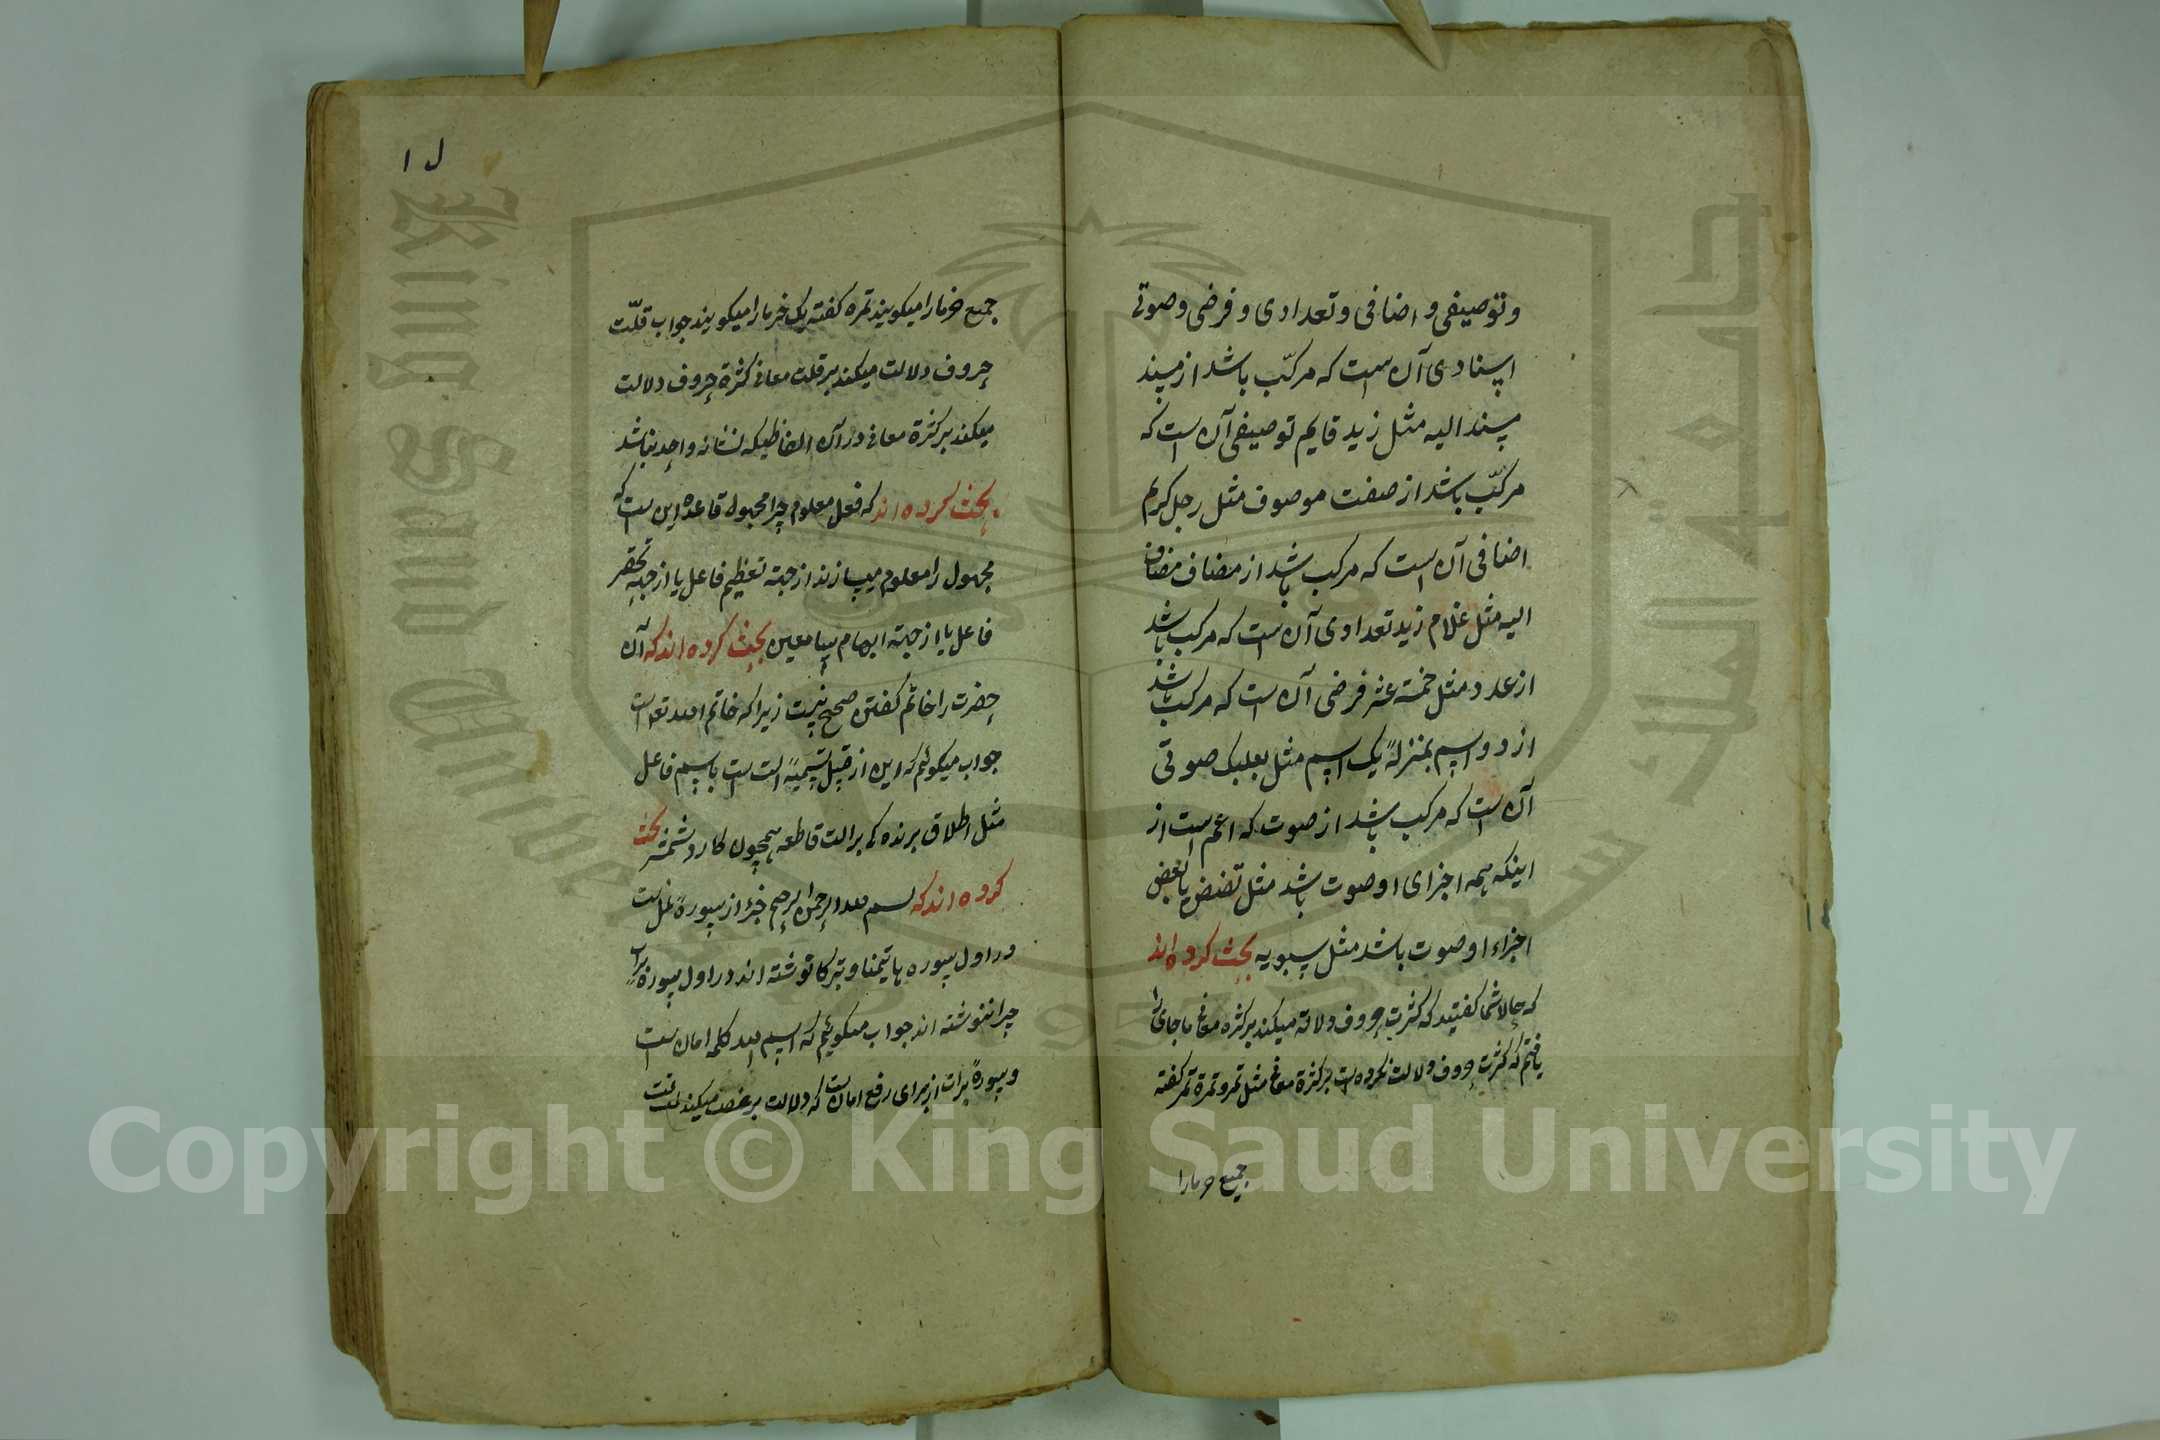 وتوصیفی و اضافی و تعدادی و فرضی و صوتی
اسنادی آن است که مرکّب باشد از مسند
مسند الیه مثل زید قایم توصیفی آن است که
مرکّب باشد از صفت موصوف مثل رجل کریم
اضافی آن است که مرکب باشد از مضاف مضاف
الیه مثل غلام زید تعدادی آن است که مرکب باشد
از عدد مثل خمسة عشر فرضی آن است که مرکب باشد
از دو اسم بمنزلهٔ یک اسم مثل بعلبک صوتی
آن است که مرکب باشد از صوت که اعم است از
اینکه همه اجزای او صوت باشد مثل یا بعض
اجزاء او صوت باشد مثل سیبویه بحث کرده اند
که حالا شما کفتید که کثرت حروف دلالة میکند بر کثره معانی ما جای را
یافتم که کثرت حروف دلالت نکرده است بر کثرة معانی مثل تمر و تمرة تمر کفته
جمیع خرما را
ل ١
جمیع خرما را میکویند تمره کفته یک خرما را میکویند جواب قلّت
حروف دلالت میکند بر قلت معانی کثرة حروف دلالت
میکند بر کثرة معانی در آن الفاظیکه نشانه واحد نباشد
بحث کرده اند که فعل معلوم چرا مجهول قاعده این است که
مجهول را معلوم میسازند از جهة تعظیم فاعل یا از جهة تحقیر
فاعل یا از جهة ابهام سامعین بحث کرده اند که آن
حضرت را خاتم کفتن صحیح نیست زیرا که خاتم اسم است
جواب میکوئیم که این از قبیل تسمیهٔ الت است باسم فاعل
مثل اطلاق برنده که بر الت قاطعه همچون کارد شمشیر بحث
کرده اند که بسم الله الرحمن الرحیم جزء از سورهٔ نمل است
در اول سوره ها تیمنا و تبرکا نوشته اند در اول سورهٔ برات
چرا ننوشته اند جواب میکوئیم که اسم الله کلمه امان است
و سورهٔ برات از برای رفع امان است که دلالت بر غضب میکند
Copyright © King Saud University
King Saud University
جامعة الملك سعود
1957